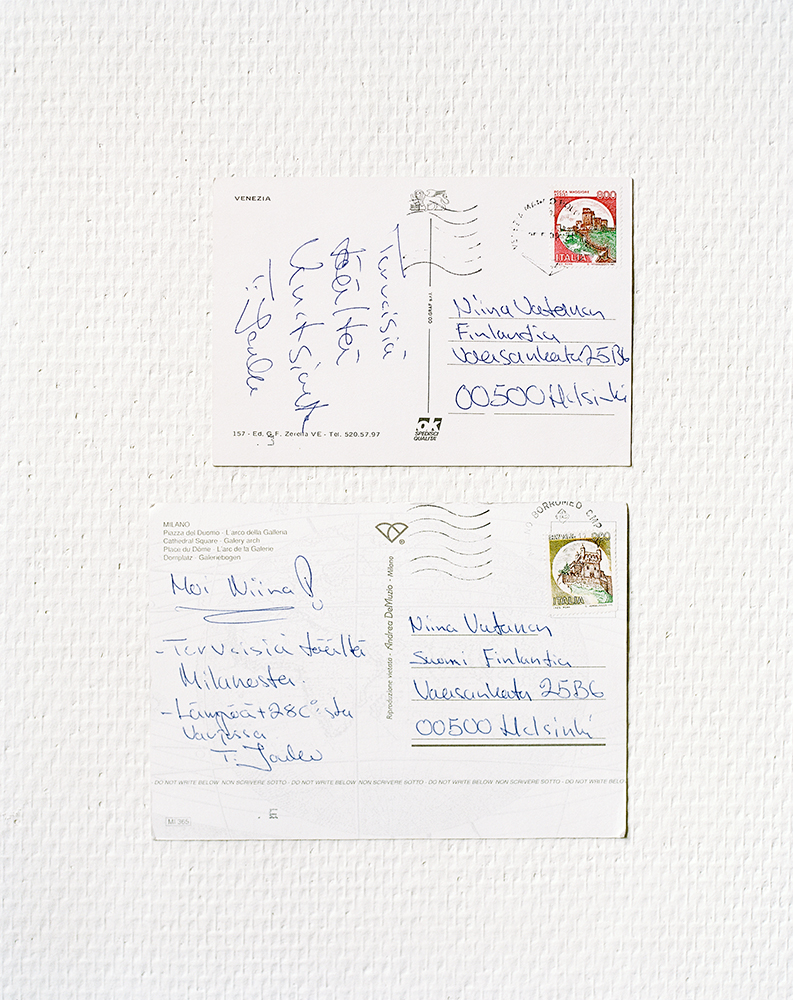 VENEZIA
Terveisiä
täältä
Venetsiasta
T: Jouko
157 - Ed. G.F. Zerella VE - Tel. 520.57.97
CO.GRAF s.r.l.
SPEDISCI
QUALITÀ
800
ITALIA
Niina Vatanen
Finlandia
Vaasankatu 25B6
00500 Helsinki
MILANO
Piazza del Duomo - L'arco della Galleria
Cathedral Square - Galery arch
Place du Dôme - L'arc de la Galerie
Domplatz - Galeriebogen
Moi Niina!
- Terveisiä täältä
Milanosta.
- Lämpöä +28C° sta
Varjossa
T: Jouko
Riproduzione vietata - Andrea DeMuzio - Milano
BORROMEO CMP
ITALIA
Niina Vatanen
Suomi Finlandia
Vaasankatu 25B6
00500 Helsinki
DO NOT WRITE BELOW NON SCRIVERE SOTTO - DO NOT WRITE BELOW NON SCRIVERE SOTTO - DO NOT WRITE BELOW NON SCRIVERE SOTTO - DO NOT WRITE BELOW
MI 365